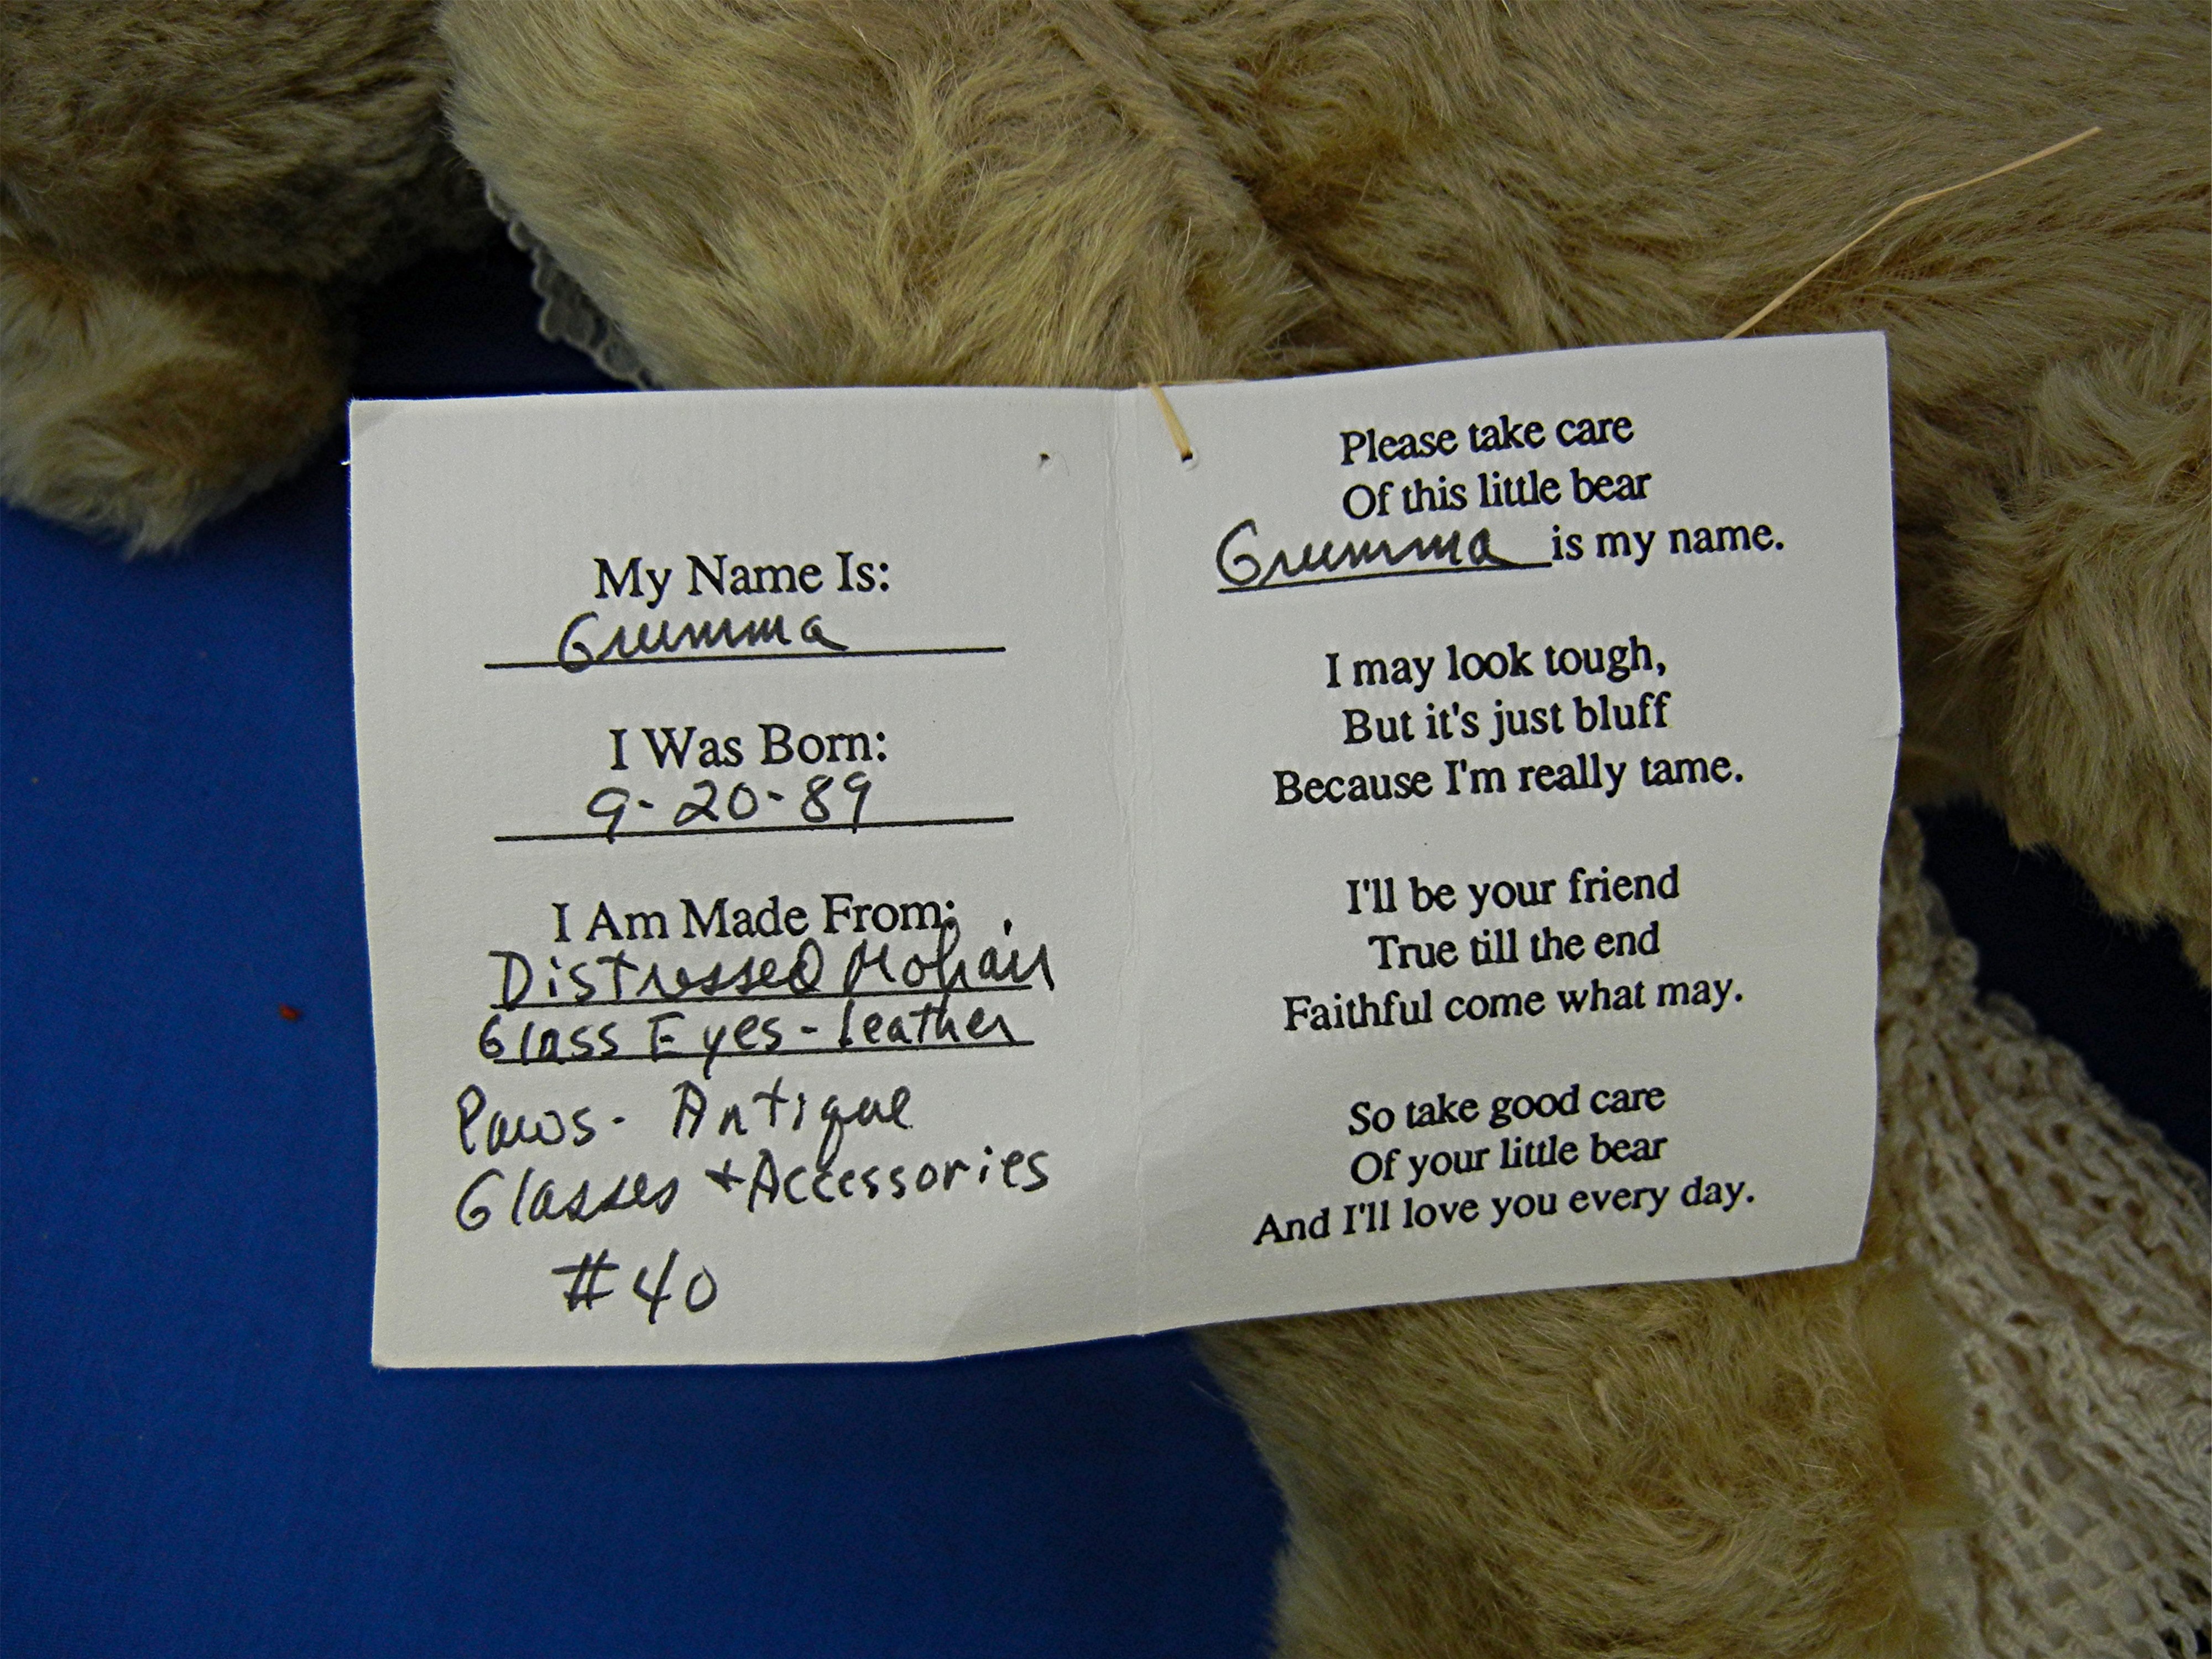 My Name Is:
Grumma
I Was Born:
9-20-89
I Am Made From:
Distressed Mohair
Glass Eyes - Leather
Paws - Antique
Glasses + Accessories
#40
Please take care
Of this little bear
Grumma is my name.
I may look tough,
But it's just bluff
Because I'm really tame.
I'll be your friend
True till the end
Faithful come what may.
So take good care
Of your little bear
And I'll love you every day.